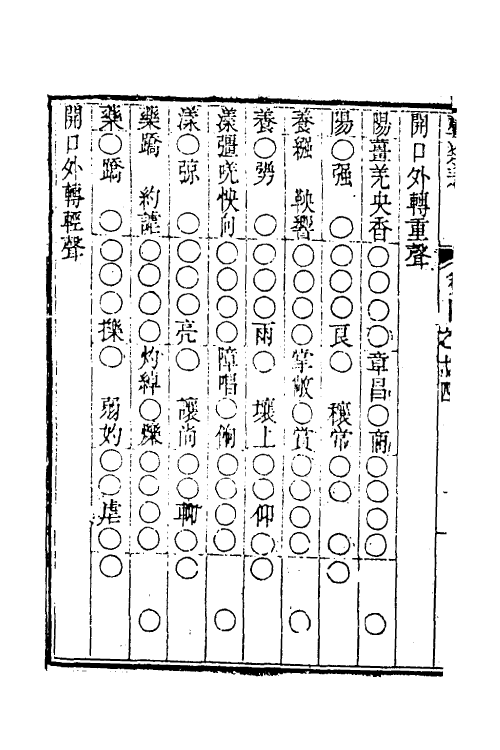 開口外轉重聲
陽薑羌央香○○○○○章昌○商○○○○○
陽○强 ○○○○○良○ 穰常○○ ○○
養繦 鞅響○○○○○掌敞○賞○○○○○
養○勥 ○○○○○兩○ 壤上○○仰○○
漾彊唴怏向○○○○○障唱○餉○○○○○
漾○弶 ○○○○○亮○ 讓尚○○䭹○○
藥蹻 約謔○○○○○灼綽○爍○○○○○
藥○蹻 ○○○○○擽○ 弱妁○○虐○○
開口外轉輕聲